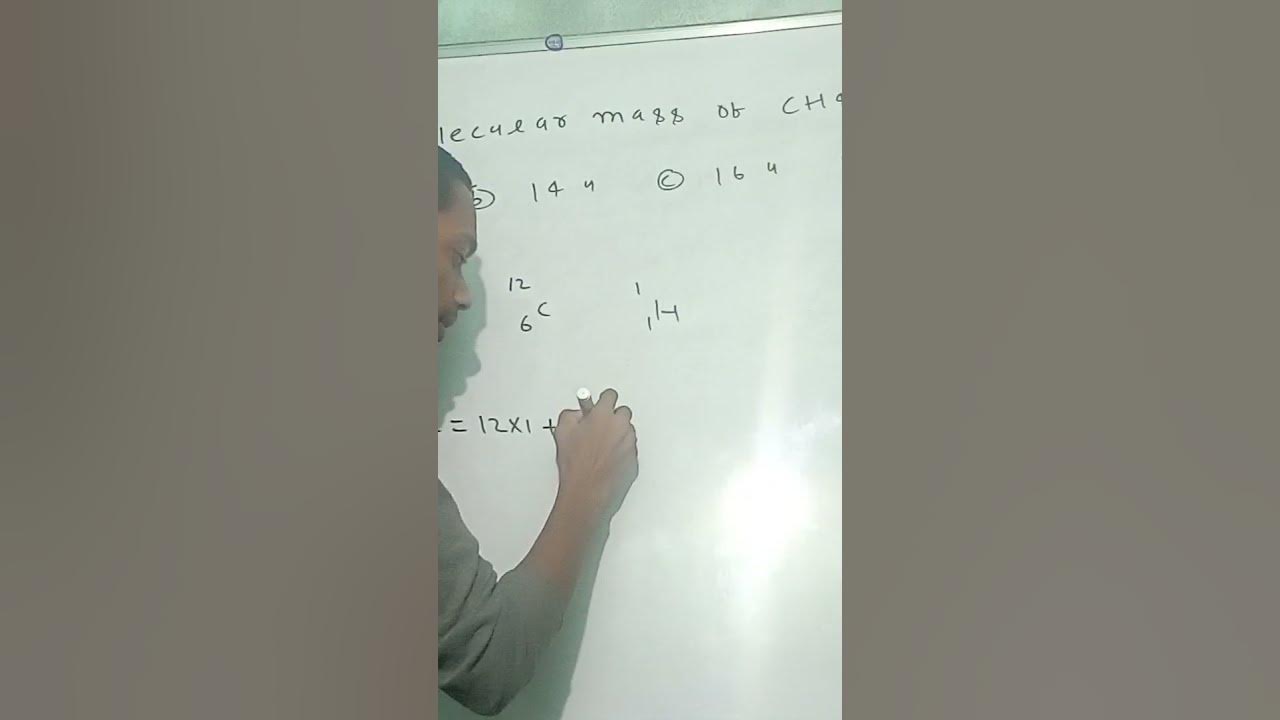 lecular mass of CH4
b 14 u c 16 u
12 1
6 C 1 H
= 12x1 +